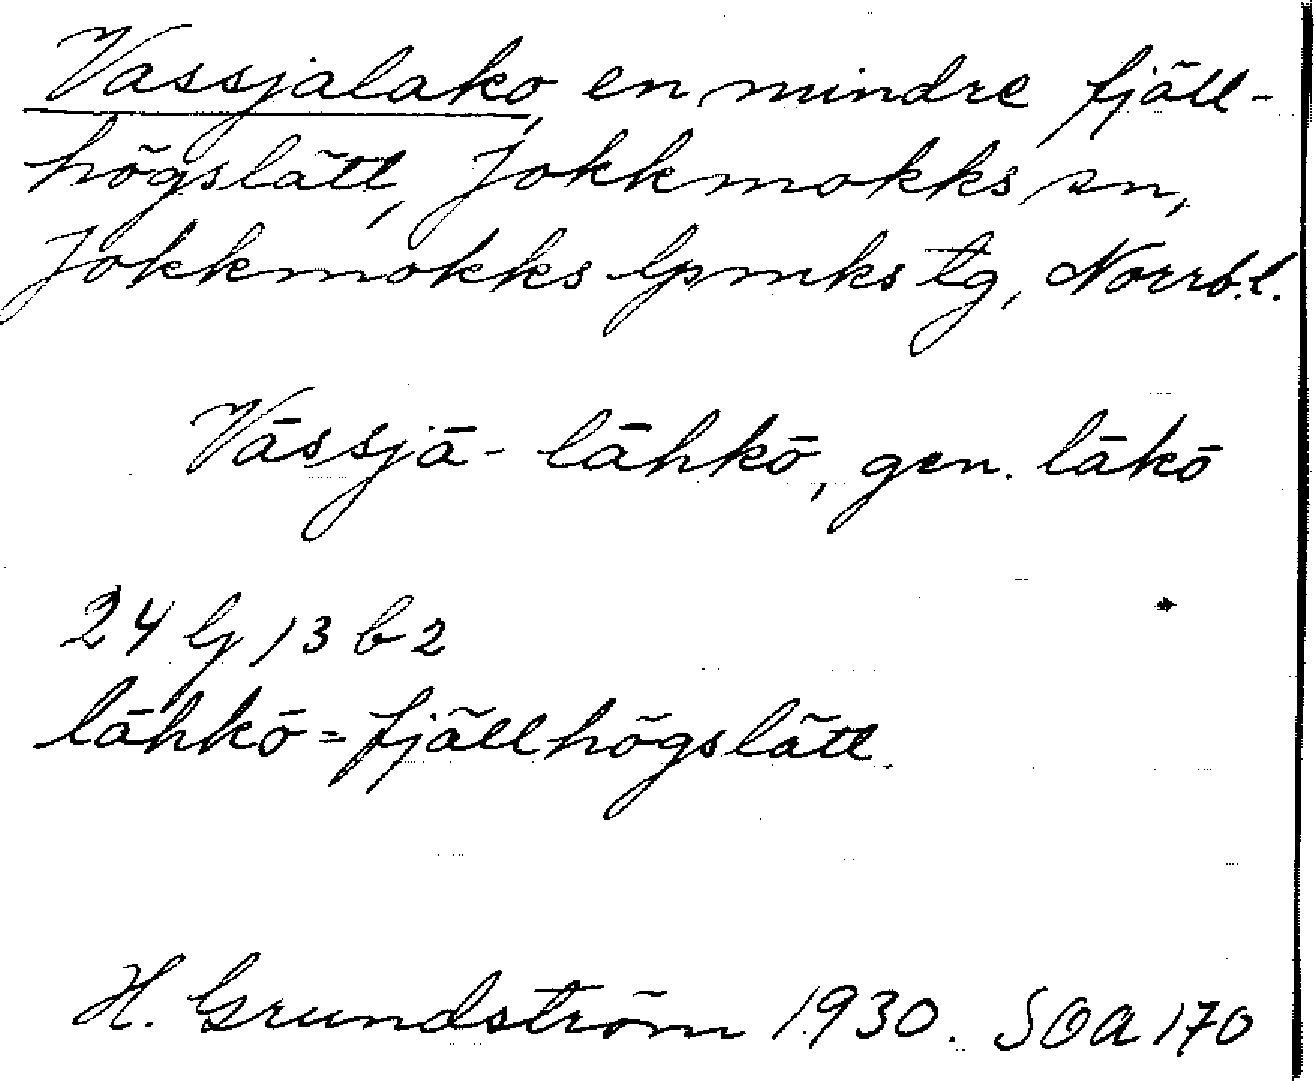 Vassjalako, en mindre fjäll-
högslätt, Jokkmokks sn,
Jokkmokks lpmks tg, Norrb. l.
Vāssjā- lāhkō, gen. lākō
24 G 13 b 2
lāhkō = fjällhögslätt.
H. Grundström 1930. SOA 170